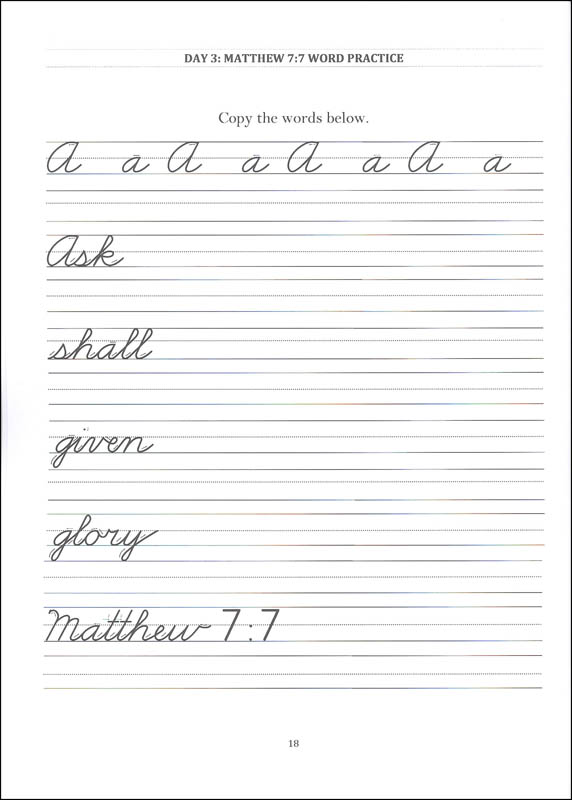 DAY 3: MATTHEW 7:7 WORD PRACTICE
Copy the words below.
A a A a A a A a
Ask
shall
given
glory
Matthew 7:7
18